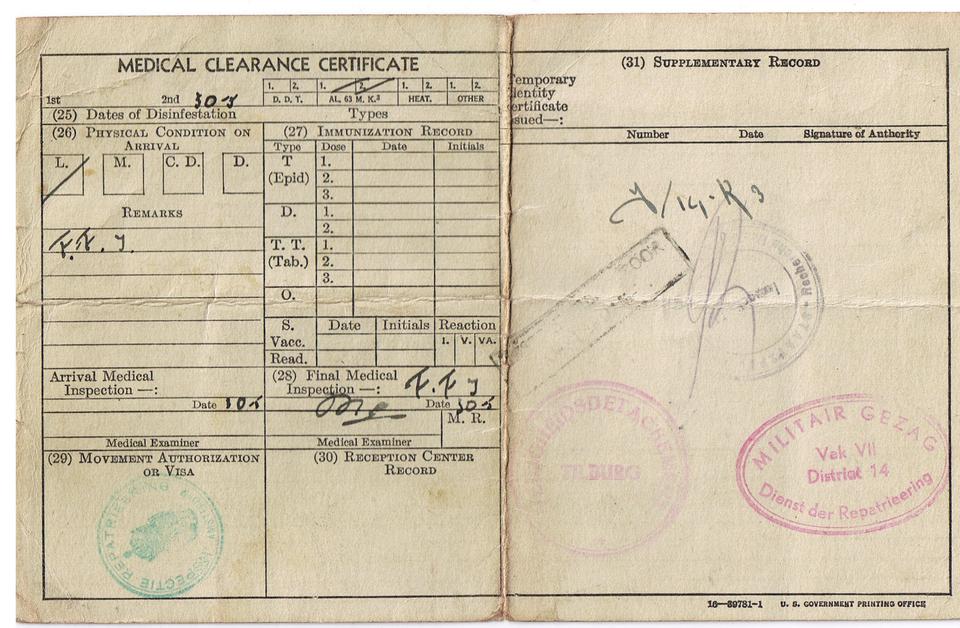 MEDICAL CLEARANCE CERTIFICATE
1st 2nd 30-5
1. 2. 1. 2. 1. 2. 1. 2.
D. D. T. AL. 63 M. K.³ HEAT. OTHER
(25) Dates of Disinfestation Types
(26) PHYSICAL CONDITION ON
ARRIVAL
L. M. C. D. D.
REMARKS
(27) IMMUNIZATION RECORD
Type Dose Date Initials
T 1.
(Epid) 2.
3.
D. 1.
2.
T. T. 1.
(Tab.) 2.
3.
O.
S. Date Initials Reaction
Vacc. I. V. VA.
Read.
Arrival Medical
Inspection —:
Date 30-5
Medical Examiner
(28) Final Medical
Inspection —:
Date 30-5
M. R.
Medical Examiner
(29) MOVEMENT AUTHORIZATION
OR VISA
INSPECTIE REPATRIEERING
(30) RECEPTION CENTER
RECORD
(31) SUPPLEMENTARY RECORD
Temporary
Identity
ertificate
issued—:
Number Date Signature of Authority
OOR
TILBURG
MILITAIR GEZAG
Vak VII
District 14
Dienst der Repatrieering
16—39781-1 U. S. GOVERNMENT PRINTING OFFICE